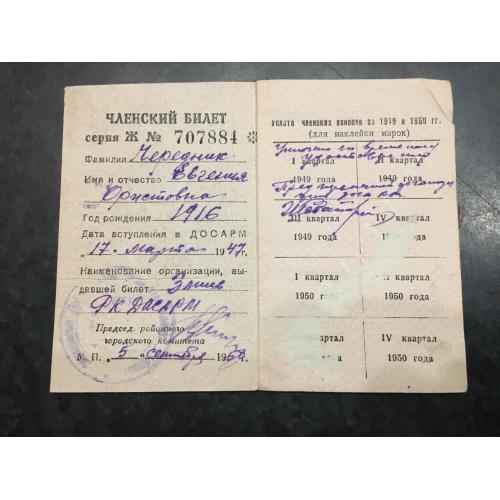 ЧЛЕНСКИЙ БИЛЕТ
серия Ж № 707884
Фамилия Чередник
Имя и отчество Евгения
Ористовна
Год рождения 1916
Дата вступления в ДОСАРМ
"17" марта 1947г.
Наименование организации, вы-
давшей билет
РК Досарм
Председ. районного
городского комитета
М. П. "5" сентября 1950г.
Уплата членских взносов за 1949 и 1950 гг.
(для наклейки марок)
Уплочено по временному
удостоверению
I квартал
1949 года
II квартал
1949 года
III квартал
1949 года
IV квартал
1949 года
I квартал
1950 года
II квартал
1950 года
квартал
IV квартал
1950 года